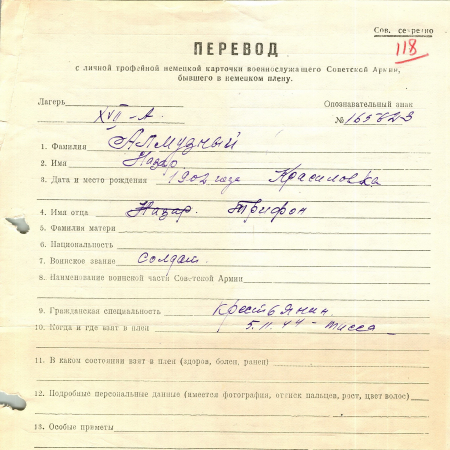 Сов. секретно
118
ПЕРЕВОД
с личной трофейной немецкой карточки военнослужащего Советской Армии,
бывшего в немецком плену.
Лагерь Опознавательный знак
XVII-А. №
1. Фамилия Алмудный
2. Имя Назар
3. Дата и место рождения 1902 года Красиловка
4. Имя отца Назар. Трифон
5. Фамилия матери
6. Национальность
7. Воинское звание солдат.
8. Наименование воинской части Советской Армии
9. Гражданская специальность крестьянин.
10. Когда и где взят в плен 5.11.44 - Тисса
11. В каком состоянии взят в плен (здоров, болен, ранен)
12. Подробные персональные данные (имеется фотография, оттиск пальцев, рост, цвет волос)
13. Особые приметы